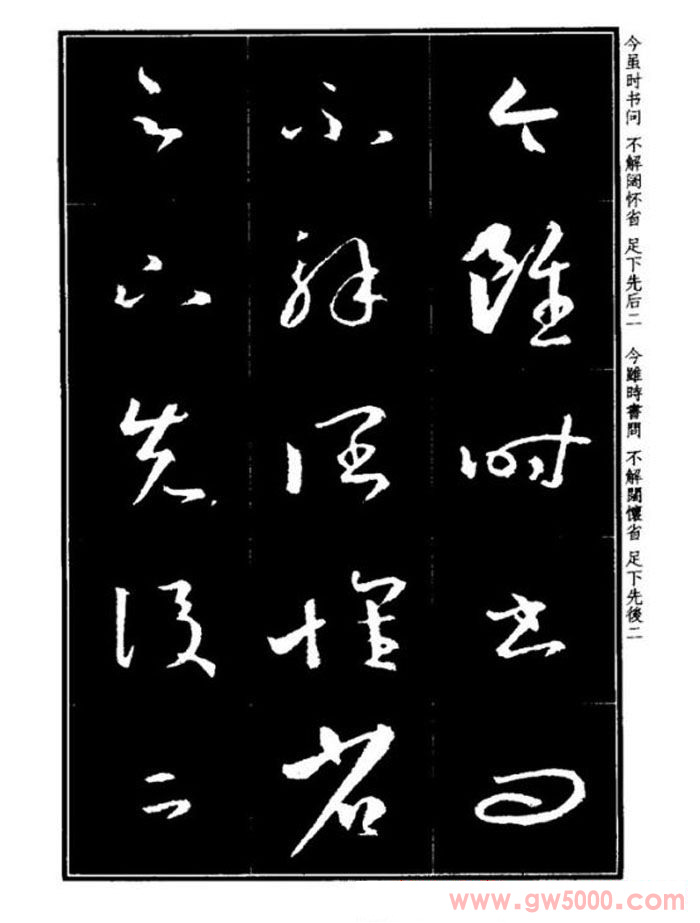 今雖時書問
不解闊懷省
足下先後二
今虽时书问 不解阔怀省 足下先后二 今雖時書問 不解闊懷省 足下先後二
www.gw5000.com